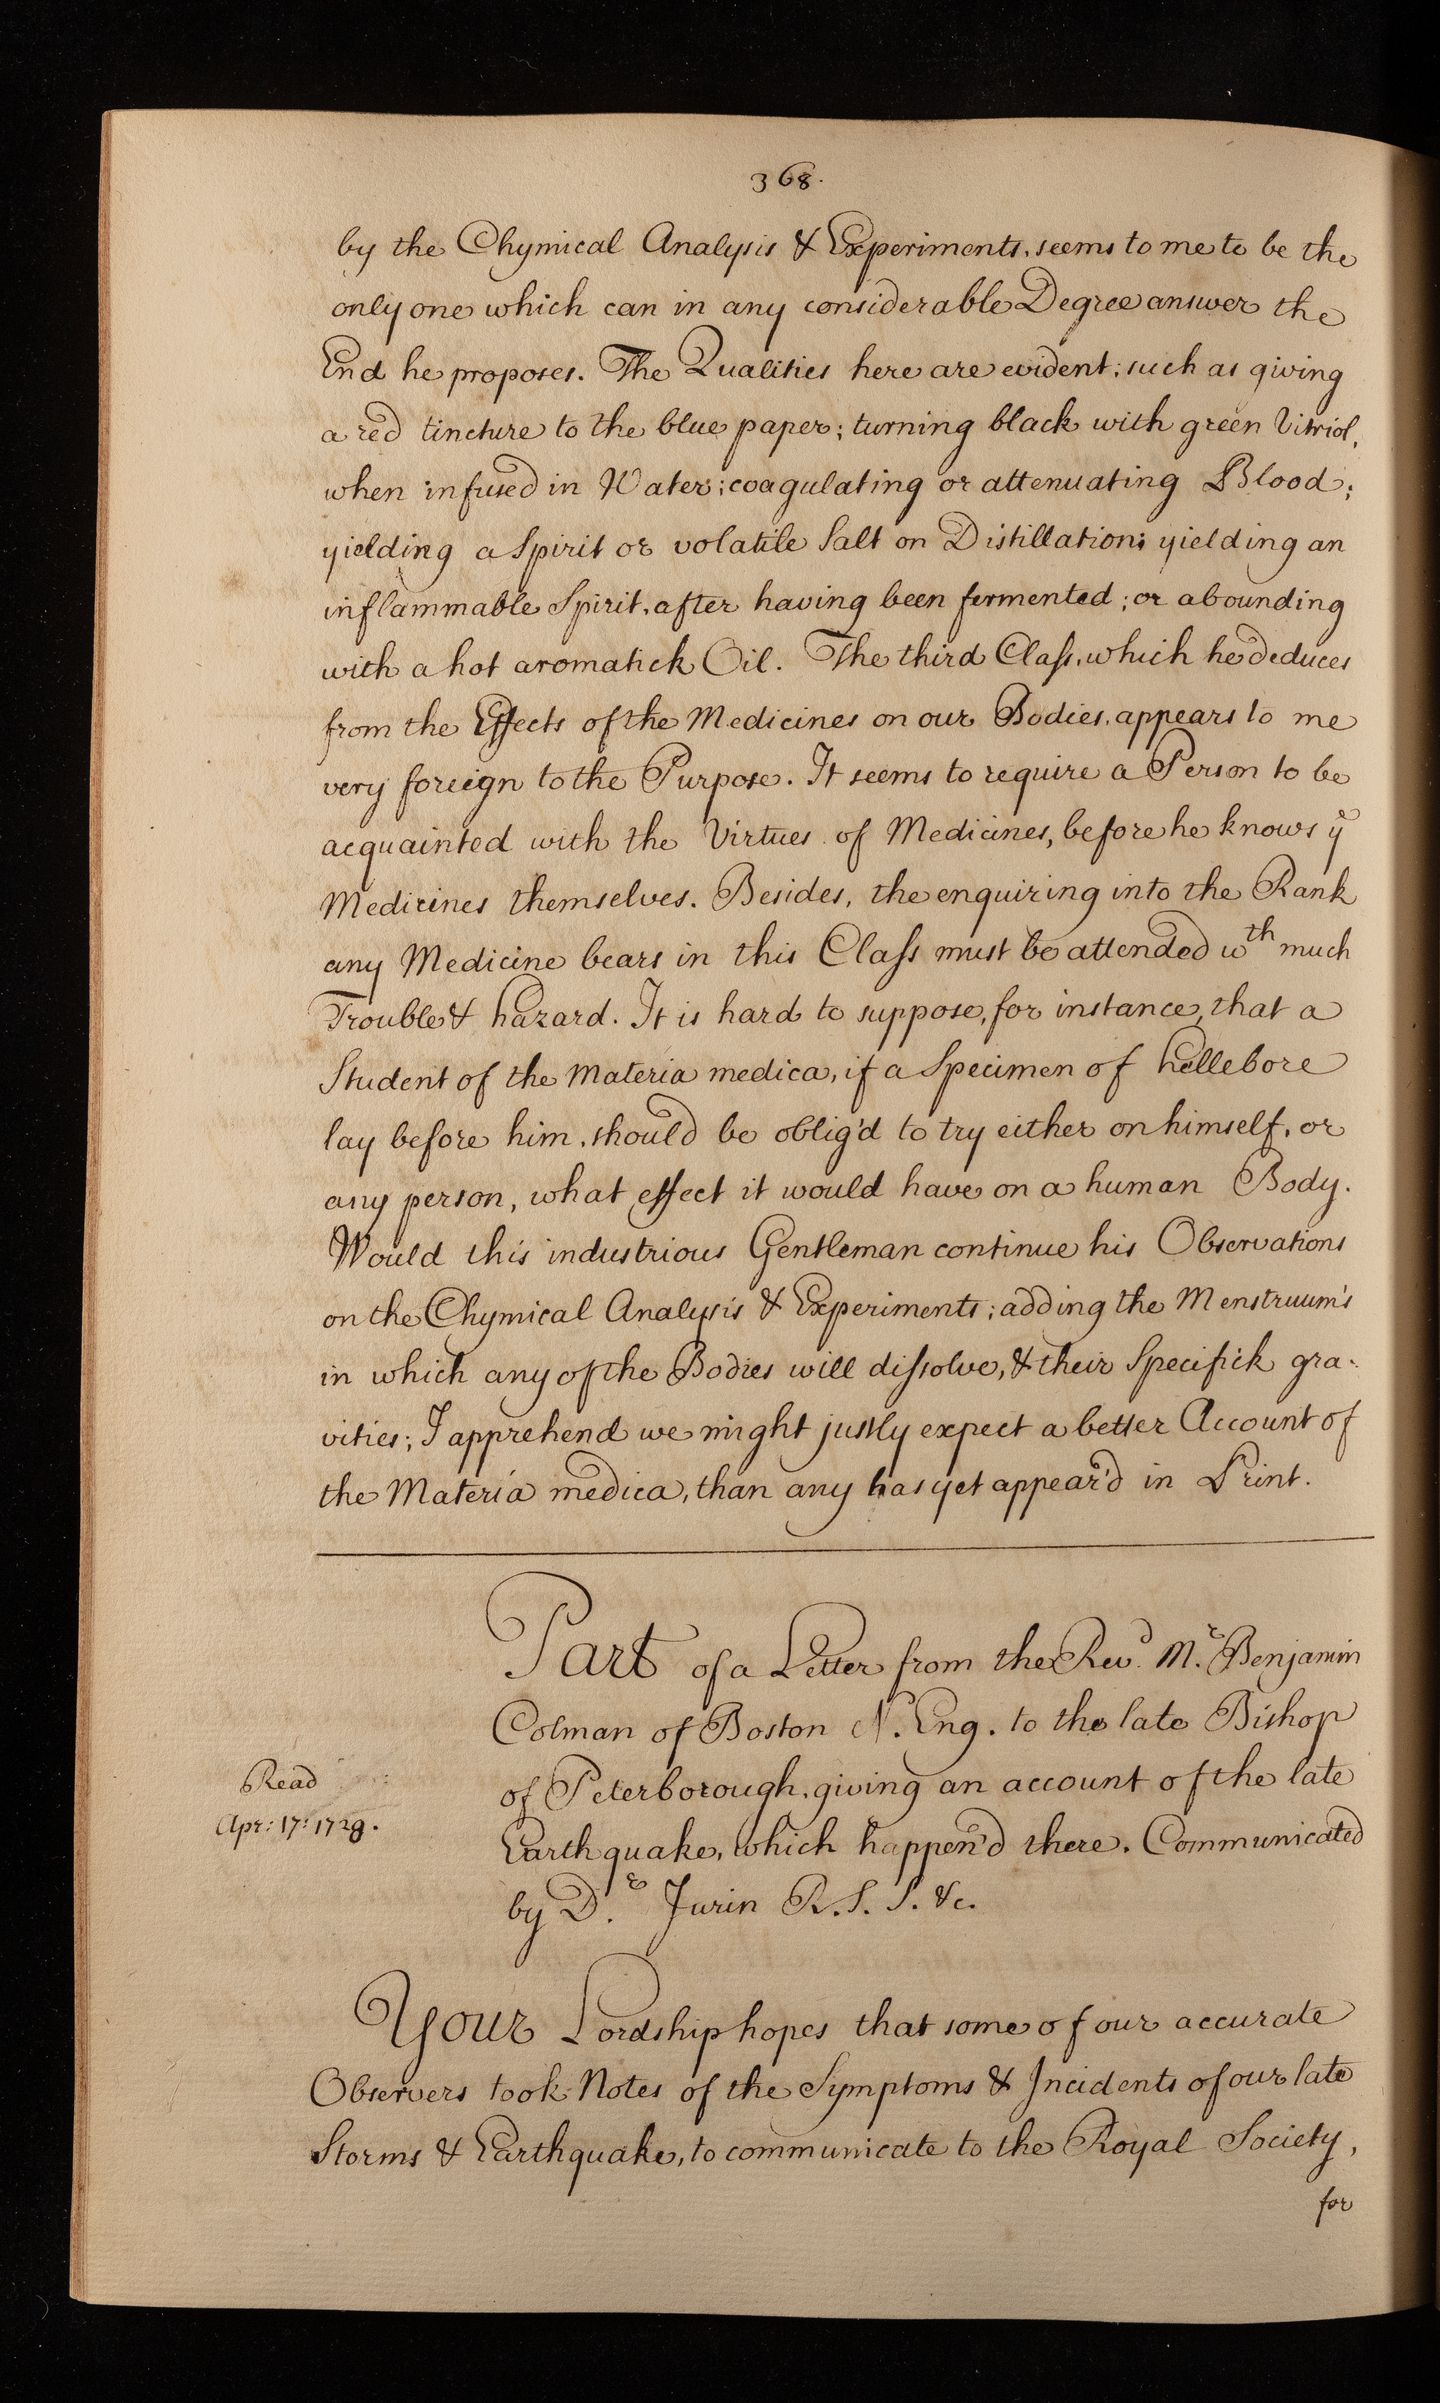 368.
by the Chymical Analysis & Experiments, seems to me to be the
only one which can in any considerable Degree answer the
End he proposes. The Qualities here are evident; such as giving
a red tincture to the blue paper; turning black with green Vitriol,
when infused in Water; coagulating or attenuating Blood;
yielding a Spirit or volatile Salt on Distillation; yielding an
inflammable Spirit, after having been fermented; or abounding
with a hot aromatick Oil. The third Class, which he deduces
from the Effects of the Medicines on our Bodies, appears to me
very foreign to the Purpose. It seems to require a Person to be
acquainted with the Virtues of Medicines, before he knows yͤ
Medicines themselves. Besides, the enquiring into the Rank
any Medicine bears in this Class must be attended wth much
Trouble & hazard. It is hard to suppose, for instance, that a
Student of the Materia medica, if a Specimen of hellebore
lay before him, should be oblig'd to try either on himself, or
any person, what effect it would have on a human Body.
Would this industrious Gentleman continue his Observations
on the Chymical Analysis & Experiments; adding the Menstruum's
in which any of the Bodies will dissolve, & their Specifick gra-
vities; I apprehend we might justly expect a better Account of
the Materia medica, than any has yet appear'd in Print.
Part of a Letter from the Revd. Mr. Benjamin
Colman of Boston N. Eng. to the late Bishop
of Peterborough, giving an account of the late
Earthquake, which happen'd there. Communicated
by Dr. Jurin R. S. S. &c.
Read
Apr: 17: 1729.
Your Lordship hopes that some of our accurate
Observers took Notes of the Symptoms & Incidents of our late
Storms & Earthquake, to communicate to the Royal Society,
for